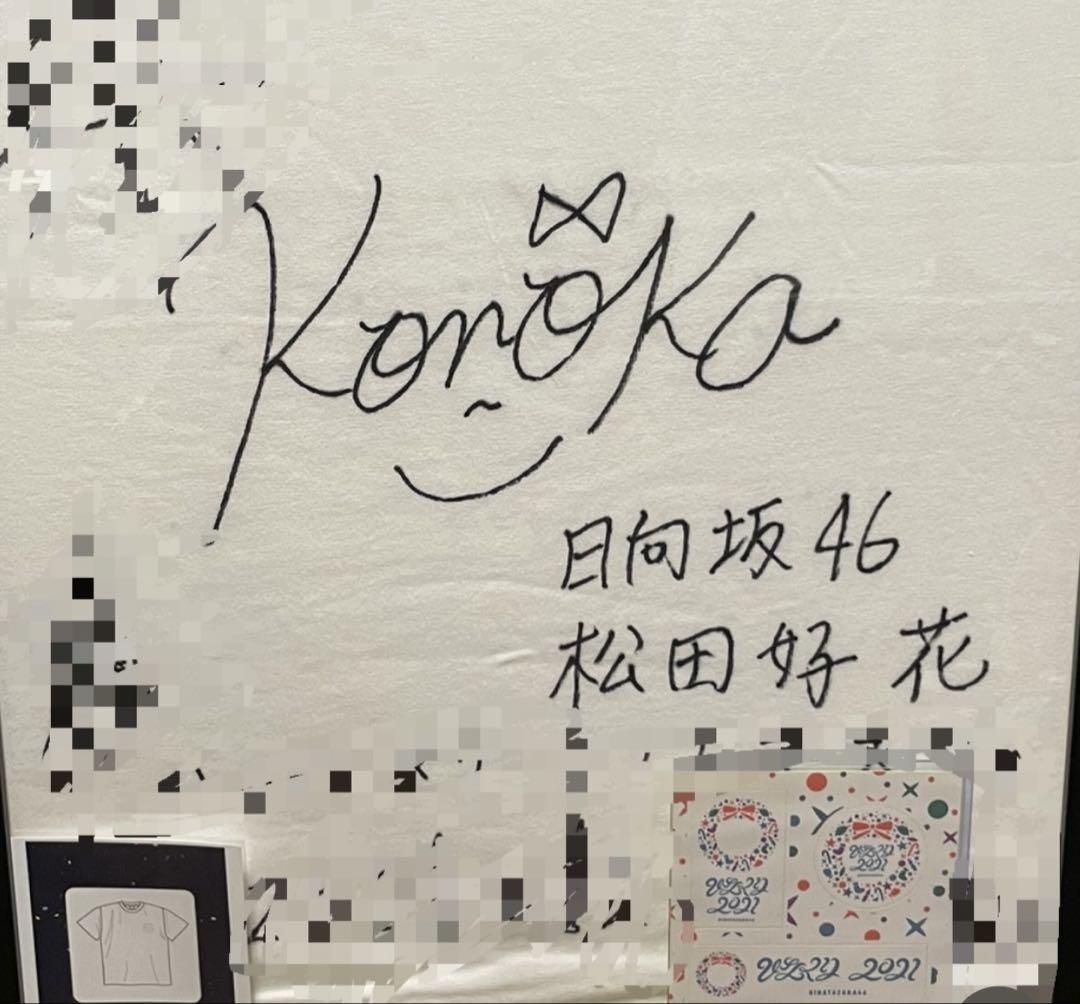 Konoka
日向坂46
松田好花
2021
2021
2021
HINATAZAKA46